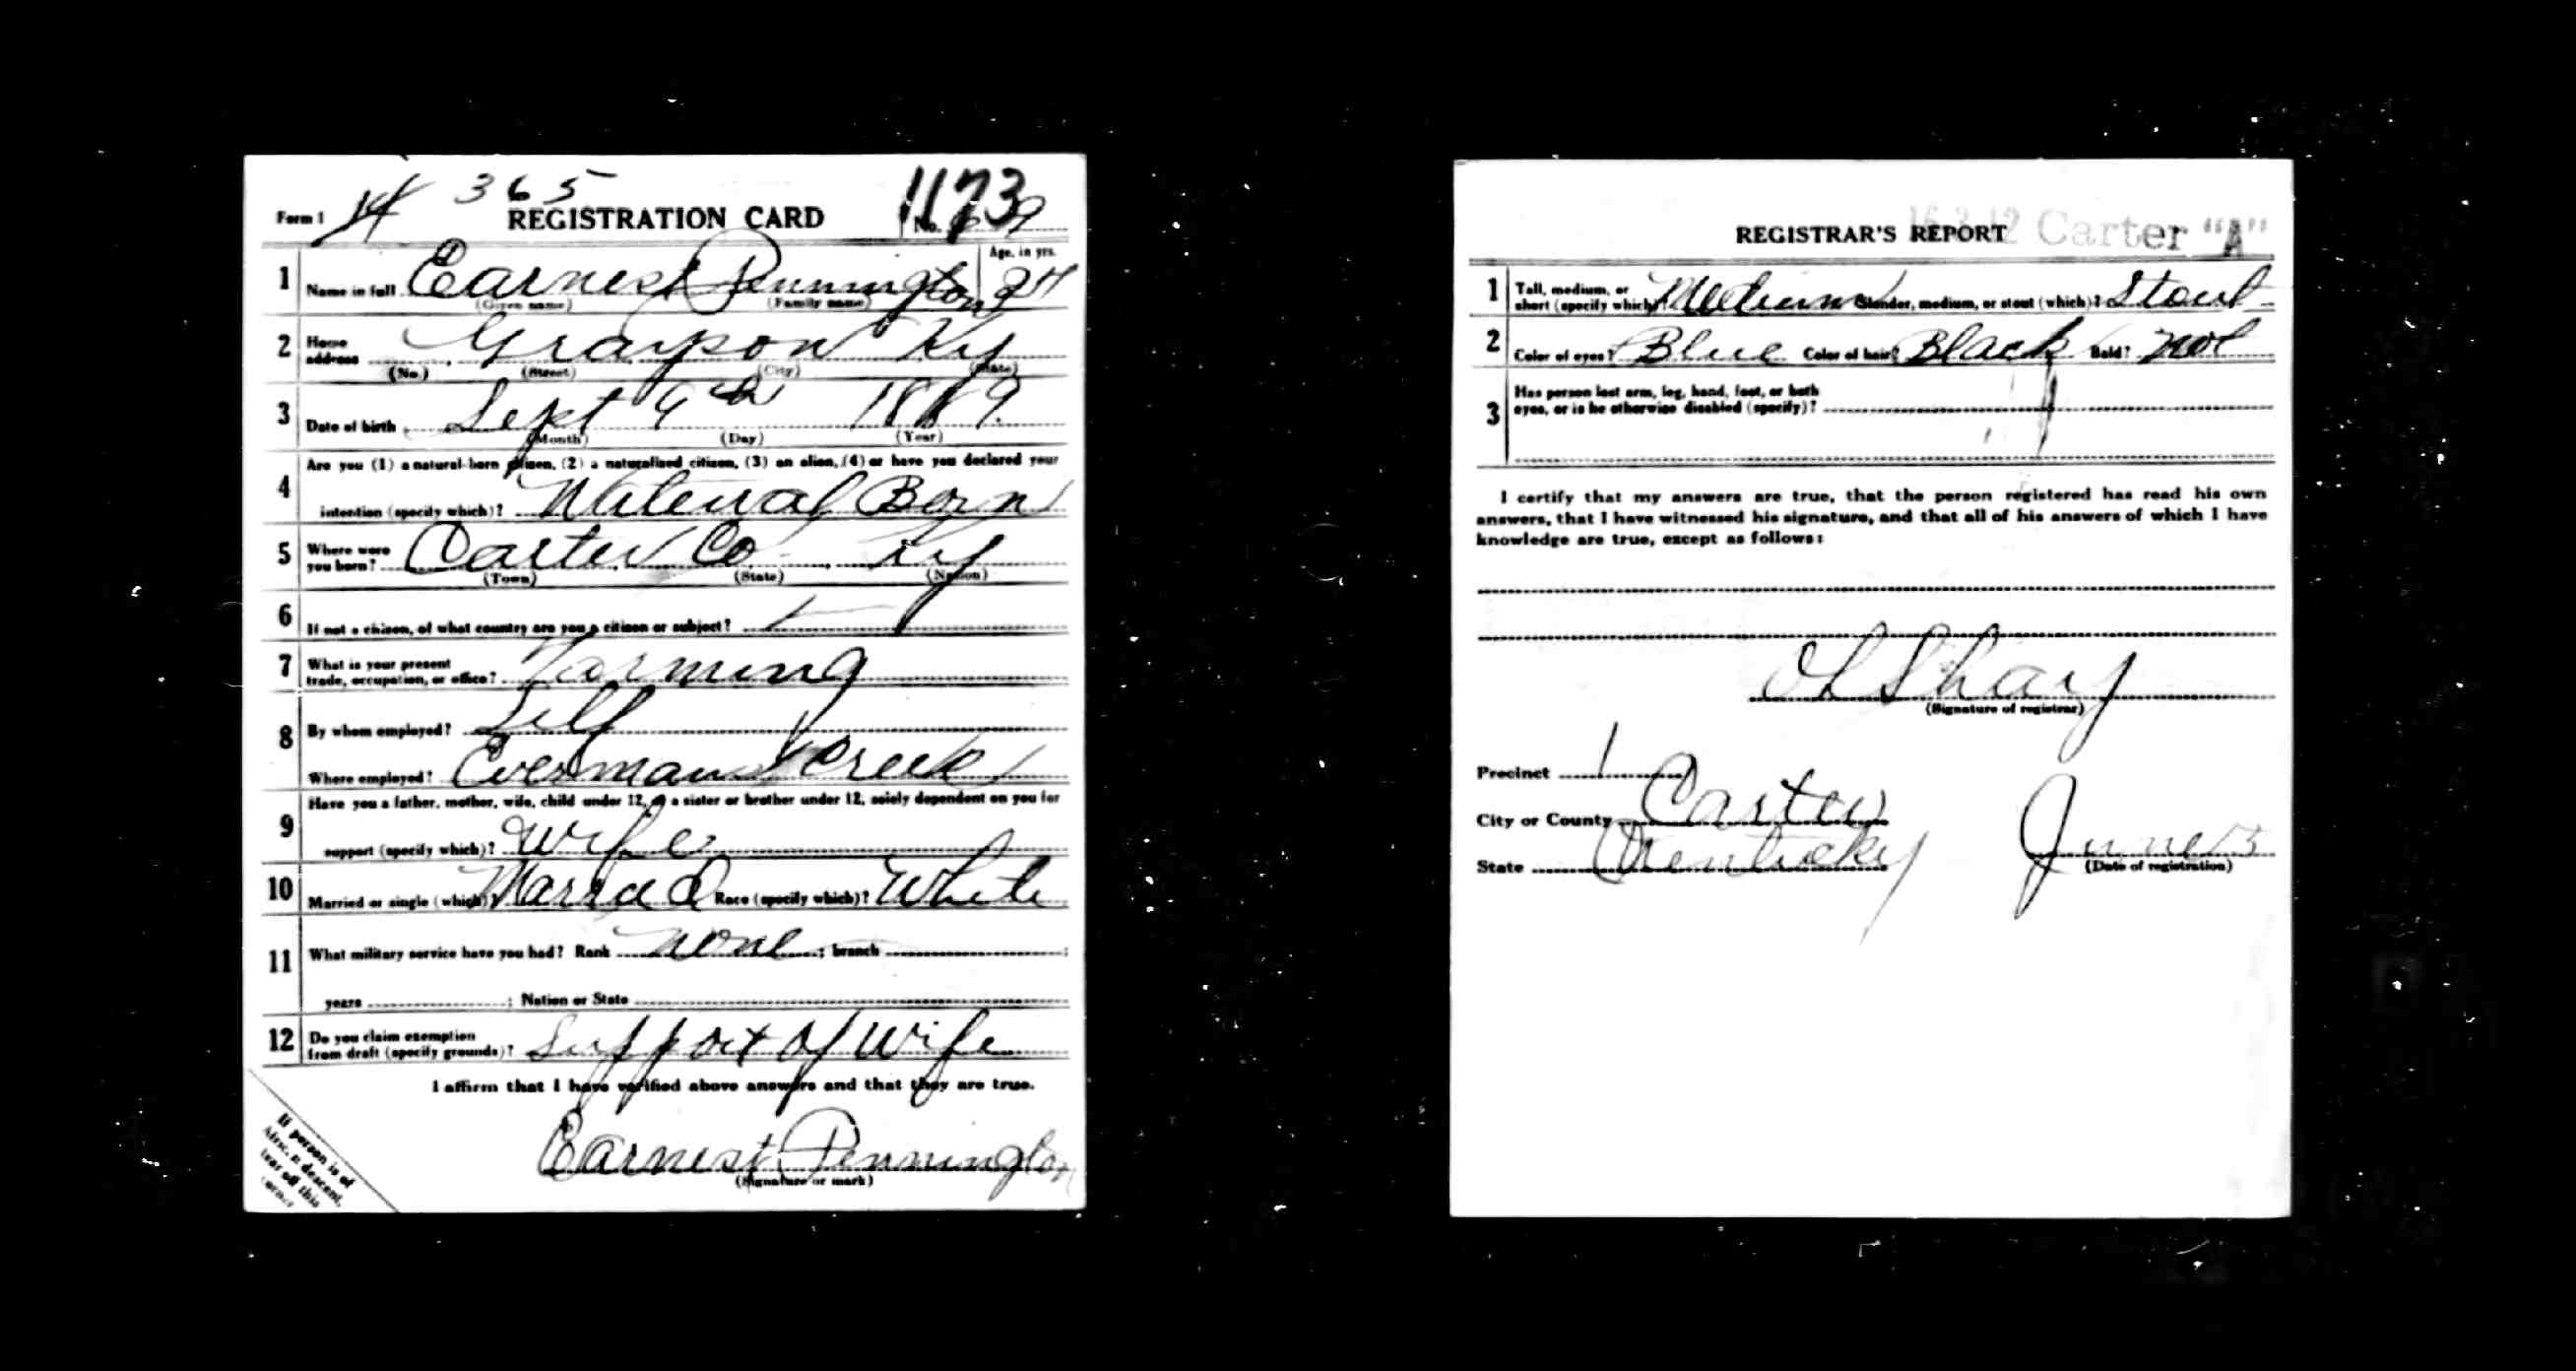 Form 1 14 365 REGISTRATION CARD No. 1173
1 Name in full Earnest Pennington Age, in yrs. 27
(Given name) (Family name)
2 Home address Grayson Ky
(No.) (Street) (City) (State)
3 Date of birth Sept 9th 1889
(Month) (Day) (Year)
4 Are you (1) a natural-born citizen, (2) a naturalized citizen, (3) an alien, (4) or have you declared your
intention (specify which)? Natural Born
5 Where were you born? Carter Co Ky
(Town) (State) (Nation)
6 If not a citizen, of what country are you a citizen or subject?
7 What is your present
trade, occupation, or office? Farming
8 By whom employed? Self
Where employed? Evermans Creek
9 Have you a father, mother, wife, child under 12, or a sister or brother under 12, solely dependent on you for
support (specify which)? Wife
10 Married or single (which)? Married Race (specify which)? White
11 What military service have you had? Rank none ; branch ;
years ; Nation or State
12 Do you claim exemption
from draft (specify grounds)? Support of Wife
I affirm that I have verified above answers and that they are true.
Earnest Pennington
(Signature or mark)
If person is of
African descent,
tear off this
corner
REGISTRAR'S REPORT Carter "A"
1 Tall, medium, or
short (specify which)? Medium Slender, medium, or stout (which)? Stout
2 Color of eyes? Blue Color of hair? Black Bald? not
3 Has person lost arm, leg, hand, foot, or both
eyes, or is he otherwise disabled (specify)?
I certify that my answers are true, that the person registered has read his own
answers, that I have witnessed his signature, and that all of his answers of which I have
knowledge are true, except as follows:
(Signature of registrar)
Precinct 1
City or County Carter
State Kentucky June 5
(Date of registration)